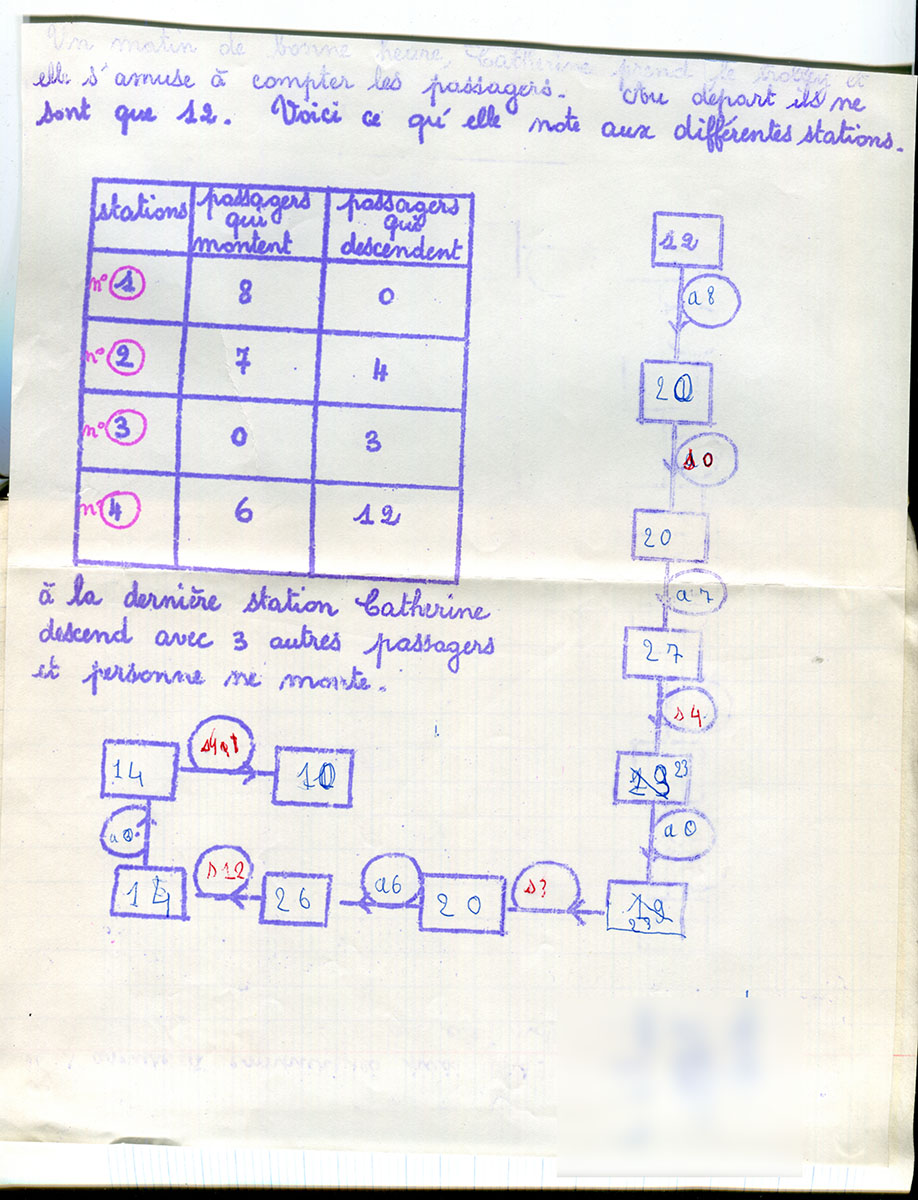 Un matin de bonne heure, Catherine prend le trolley et
elle s'amuse à compter les passagers. Au départ ils ne
sont que 12. Voici ce qu'elle note aux différentes stations.
stations passagers qui montent passagers qui descendent
n° 1 8 0
n° 2 7 4
n° 3 0 3
n° 4 6 12
à la dernière station Catherine
descend avec 3 autres passagers
et personne ne monte.
12
a 8
20
s 0
20
a 7
27
s 4
23
a 0
23
s 3
20
a 6
26
s 12
14
a 0
14
10